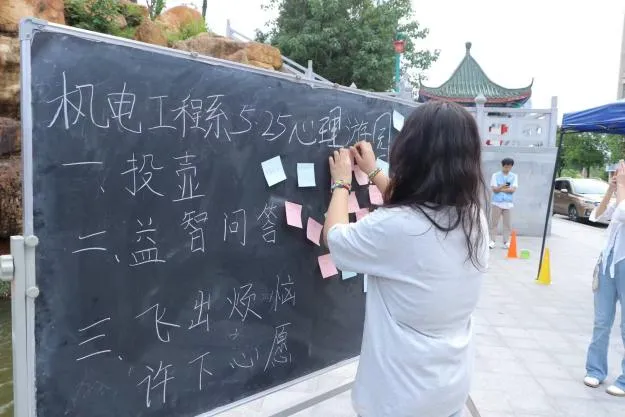 机电工程系5·25心理游园
一、投壶
二、益智问答
三、飞出烦恼
许下心愿